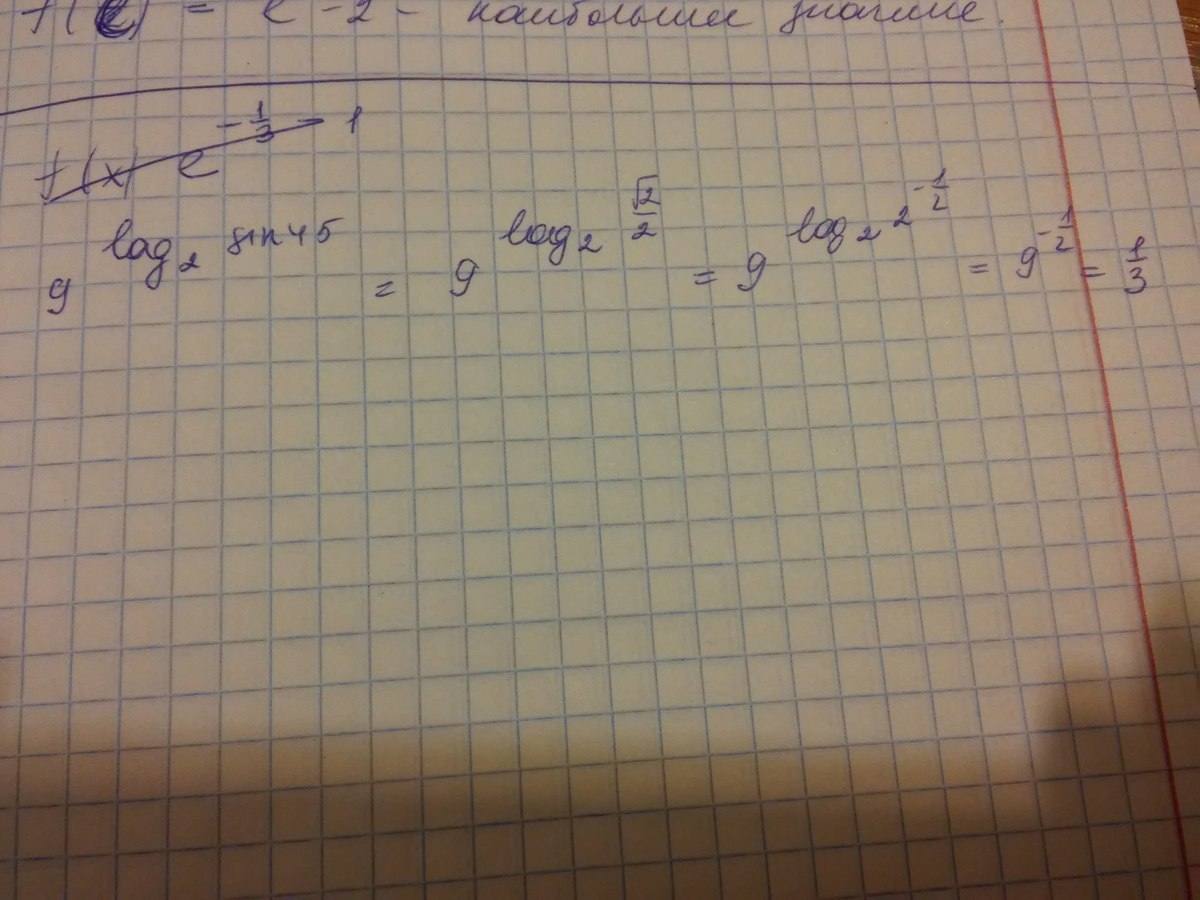 f(e) = e - 2 - наибольшее значение.
f(x) e^{-\frac{1}{3}} - 1
9^{log_2 sin 45} = 9^{log_2 \frac{\sqrt{2}}{2}} = 9^{log_2 2^{-\frac{1}{2}}} = 9^{-\frac{1}{2}} = \frac{1}{3}